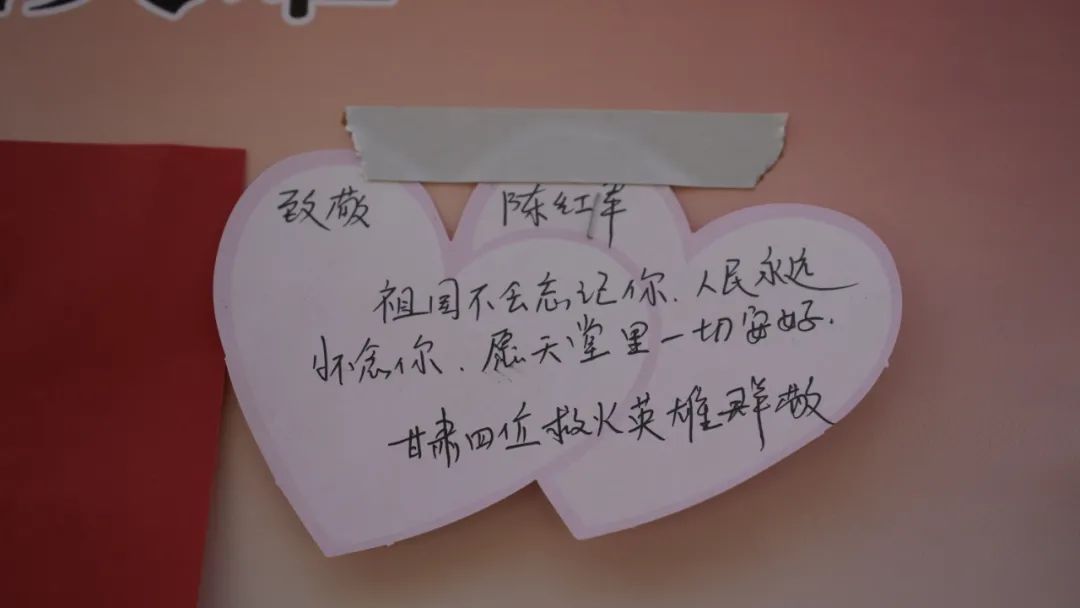 致敬 陈红军
祖国不会忘记你、人民永远
怀念你、愿天堂里一切安好.
甘肃四位救火英雄群敬